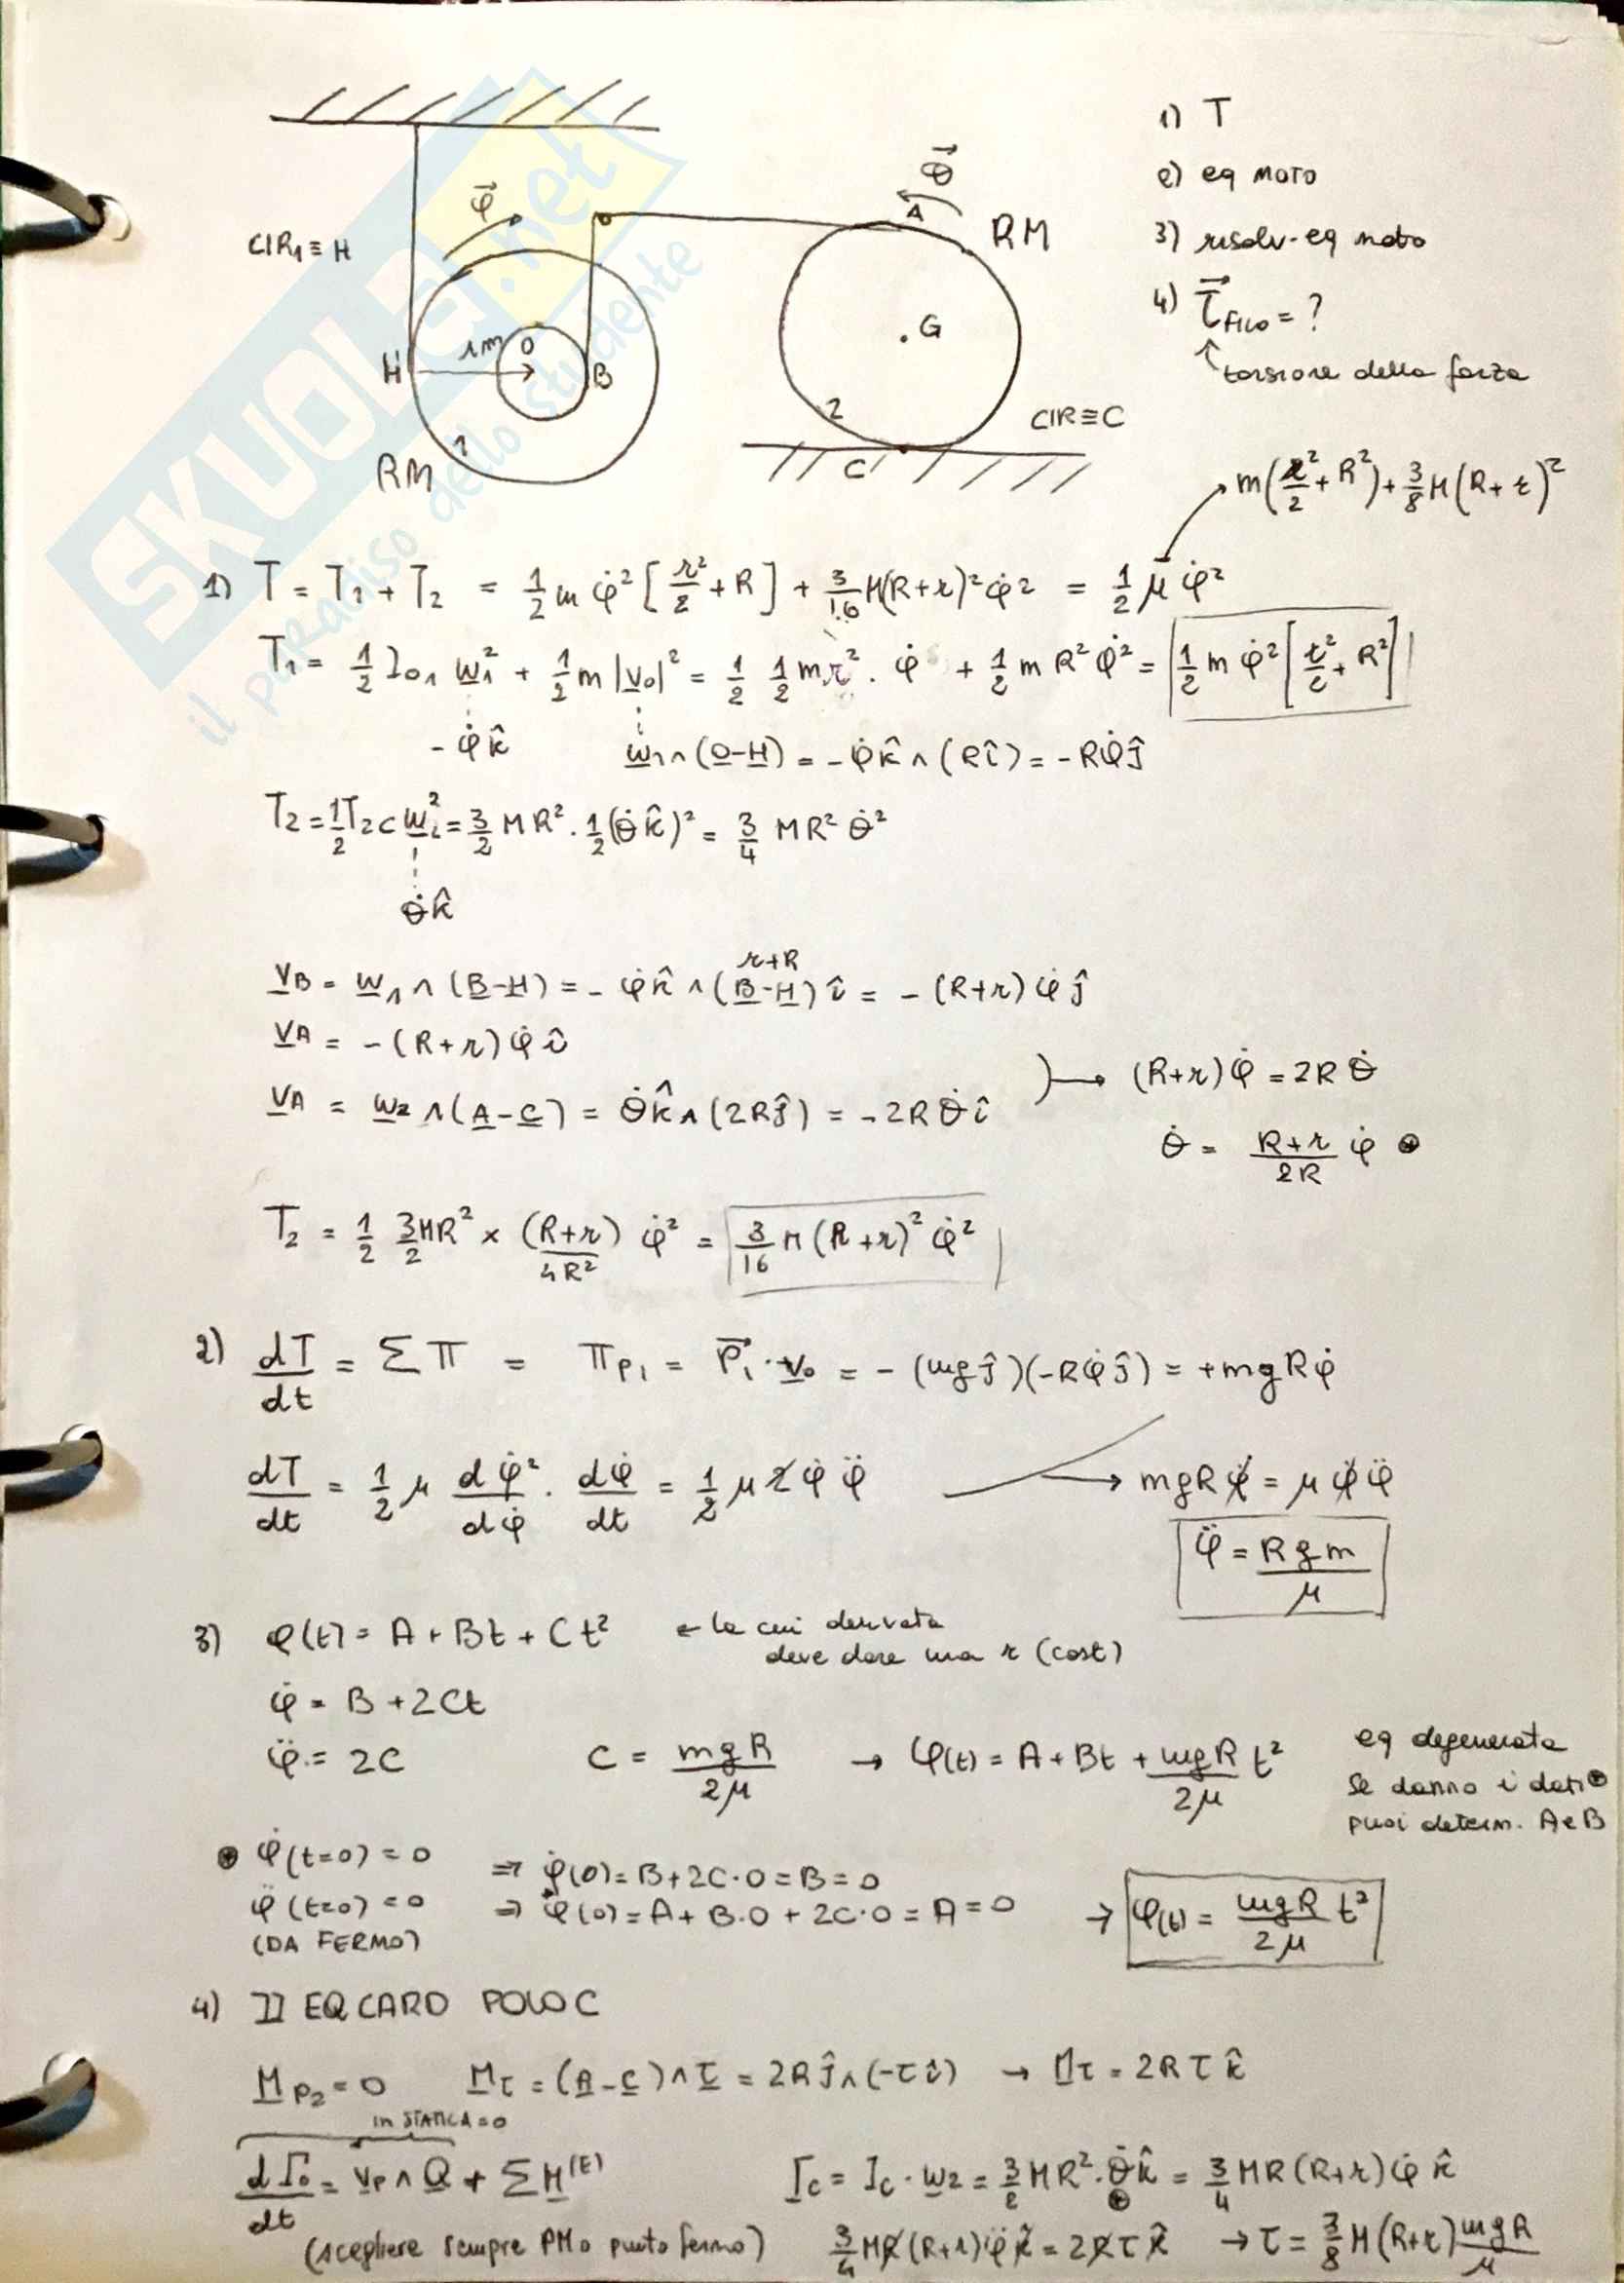 1) T
2) eq moto
3) risolv. eq moto
4) τ⃗ FILO = ?
↑ torsione della forza
φ⃗
θ⃗
A
RM
CIR₁ ≡ H
G
H
r m
O
B
2
CIR ≡ C
1
RM
C
m(r²/2 + R²) + 3/8 M(R+r)²
1) T = T₁ + T₂ = 1/2 m φ̇² [r²/2 + R] + 3/16 M(R+r)² φ̇² = 1/2 μ φ̇²
T₁ = 1/2 I₀₁ w₁² + 1/2 m |v₀|² = 1/2 1/2 m r² · φ̇ + 1/2 m R² φ̇² = 1/2 m φ̇² [r²/2 + R²]
- φ̇ k̂
w₁ ∧ (O-H) = - φ̇ k̂ ∧ (R î) = - R φ̇ ĵ
T₂ = 1/2 I₂c w₂² = 3/2 MR² · 1/2 (θ̇ k̂)² = 3/4 MR² θ̇²
θ̇ k̂
r+R
v_B = w₁ ∧ (B-H) = - φ̇ k̂ ∧ (B-H) î = - (R+r) φ̇ ĵ
v_A = - (R+r) φ̇ î
v_A = w₂ ∧ (A-C) = θ̇ k̂ ∧ (2R ĵ) = - 2R θ̇ î
→ (R+r) φ̇ = 2R θ̇
θ̇ = (R+r)/2R φ̇ ⊛
T₂ = 1/2 3/2 MR² × (R+r)/4R² φ̇² = 3/16 M (R+r)² φ̇²
2) dT/dt = Σ Π = Π_P₁ = P⃗₁ · v₀ = - (mg ĵ)(-R φ̇ ĵ) = + mg R φ̇
dT/dt = 1/2 μ dφ̇²/dφ̇ · dφ̇/dt = 1/2 μ 2 φ̇ φ̈ → mgR φ̇ = μ φ̇ φ̈
φ̈ = Rgm/μ
3) φ(t) = A + Bt + Ct² ← la cui derivata
deve dare una r (cost)
φ̇ = B + 2Ct
φ̈ = 2C
C = mgR/2μ → φ(t) = A + Bt + mgR/2μ t²
eq degenerata
se danno i dati ⊛
puoi determ. A e B
⊛ φ̇(t=0) = 0 ⇒ φ̇(0) = B + 2C·0 = B = 0
φ̈(t=0) = 0 ⇒ φ(0) = A + B·0 + 2C·0 = A = 0 → φ(t) = mgR/2μ t²
(DA FERMO)
4) II EQ CARD POLO C
M_P₂ = 0 M_τ = (A-C) ∧ τ = 2R ĵ ∧ (-τ î) → M_τ = 2R τ k̂
in STATICA = 0
dΓ₀/dt = v_P ∧ Q + Σ M^(E)
Γ_C = I_C · w₂ = 3/2 MR² · θ̇ k̂ = 3/4 MR (R+r) φ̇ k̂
⊛
(scegliere sempre PM o punto fermo)
3/4 MR (R+r) φ̈ k̂ = 2R τ k̂ → τ = 3/8 M (R+r) mgR/μ
SKUOLA.net
il paradiso dello studente